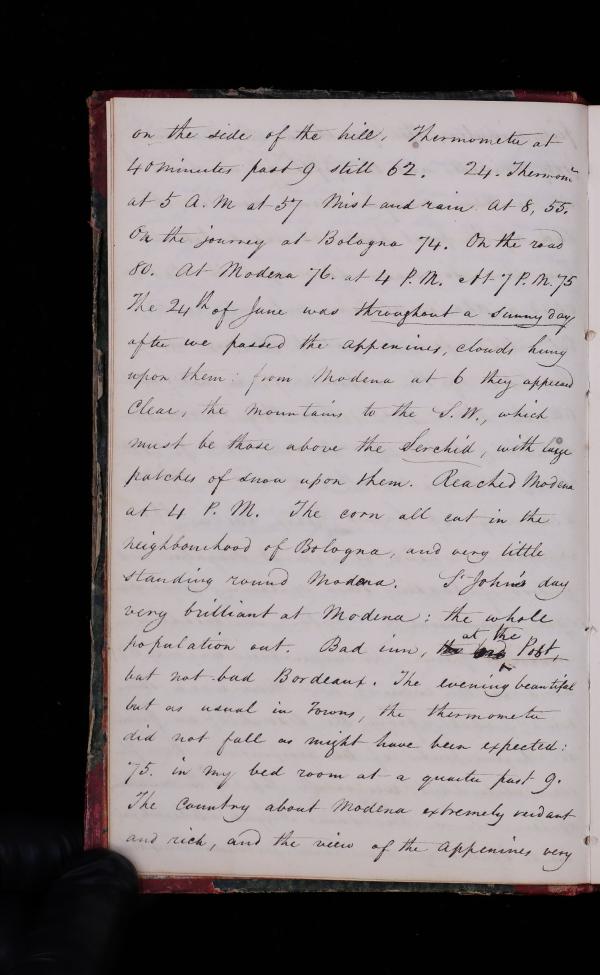 on the side of the hill. Thermometer at
40 minutes past 9 still 62. 24. Thermomr
at 5 A.M at 57 Mist and rain. At 8, 55.
On the journey at Bologna 74. On the road
80. At Modena 76. at 4 P.M. At 7 P.M. 75
The 24th of June was throughout a sunny day,
after we passed the appenines, clouds hung
upon them: from Modena at 6 they appeared
Clear, the mountains to the S.W., which
must be those above the Serchid, with large
patches of snow upon them. Reached Modena
at 4 P.M. The corn all cut in the
neighbourhood of Bologna, and very little
standing round Modena. St John's day
very brilliant at Modena: the whole
population out. Bad inn, at the Post,
but not bad Bordeaux. The evening beautiful
but as usual in Towns, the thermometer
did not fall as might have been expected:
75. in my bed room at a quarter past 9.
The Country about Modena extremely verdant
and rich, and the view of the appenines very